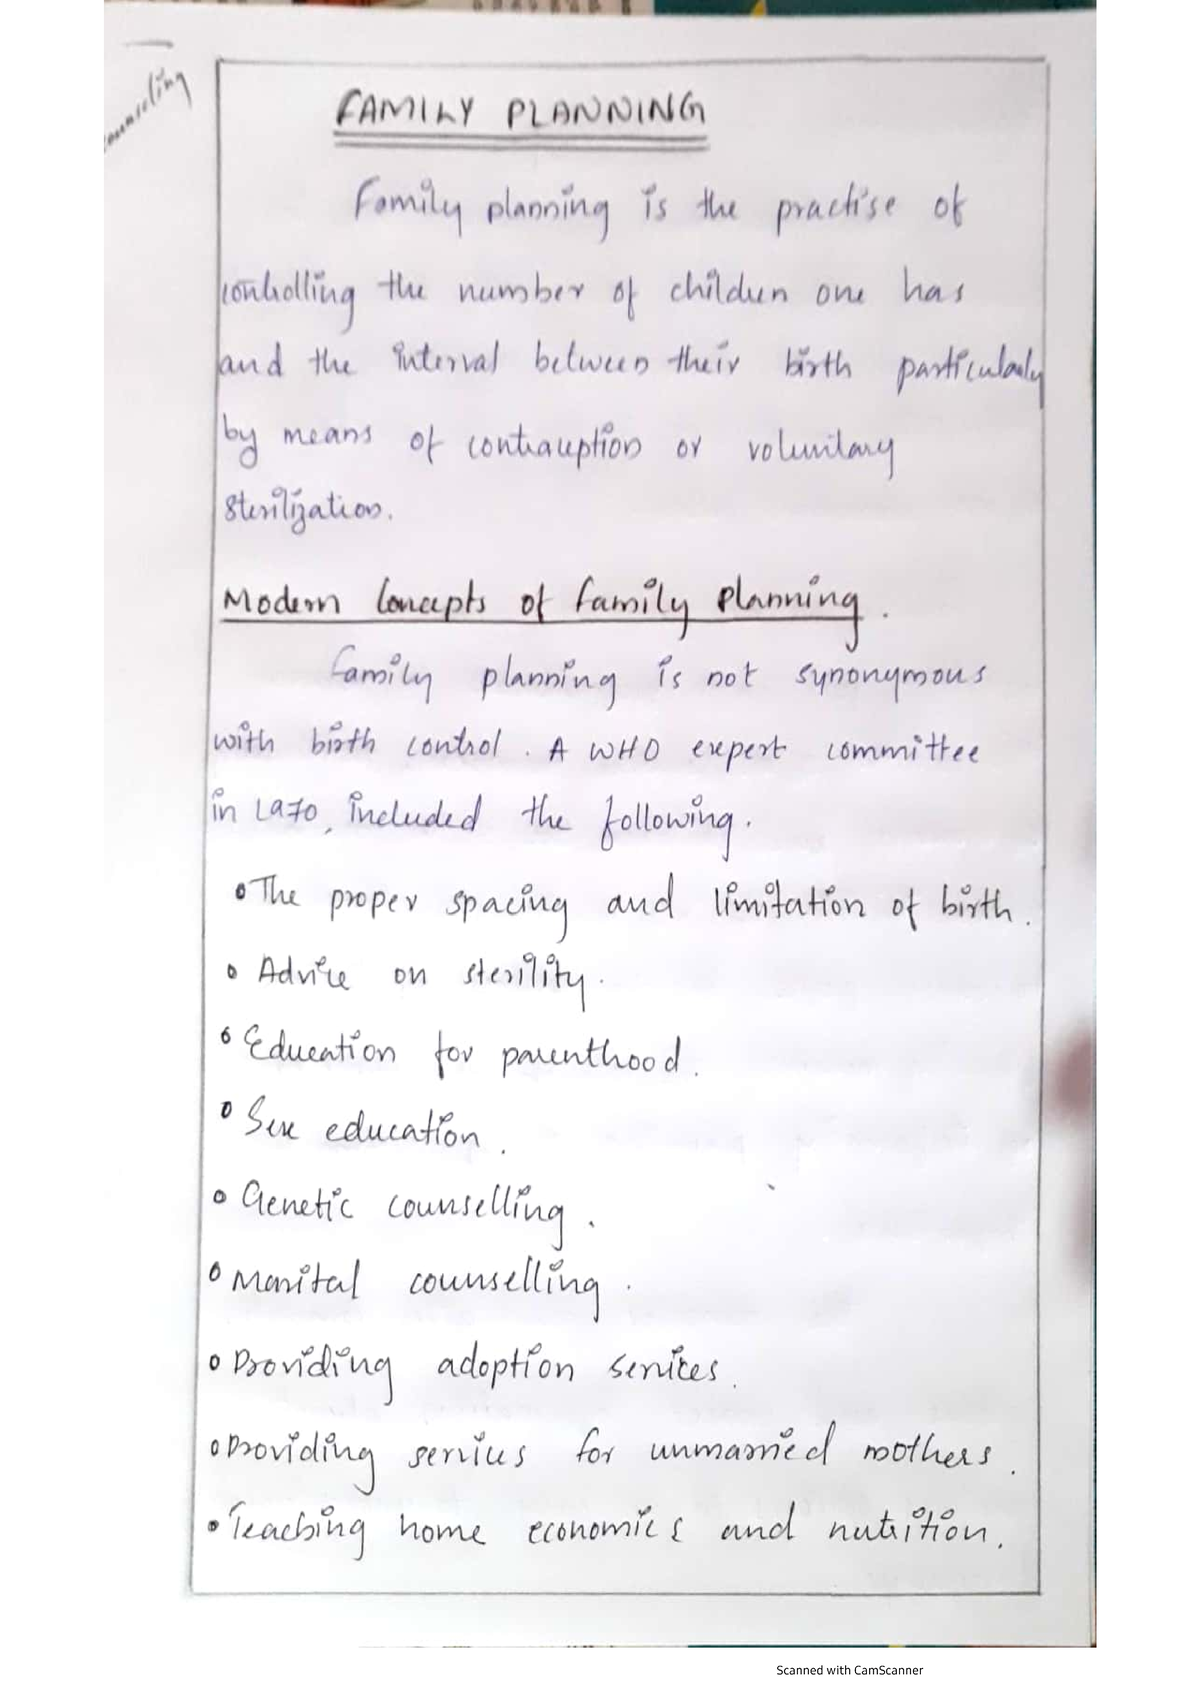 FAMILY PLANNING
Family planning is the practise of
controlling the number of children one has
and the interval between their birth particularly
by means of contraception or voluntary
sterilization.
Modern Concepts of family planning.
family planning is not synonymous
with birth control. A WHO expert committee
in 1970, included the following.
• The proper spacing and limitation of birth.
• Advice on sterility.
• Education for parenthood.
• Sex education.
• Genetic counselling.
• Marital counselling.
• Providing adoption services.
• Providing services for unmarried mothers.
• Teaching home economics and nutrition.
Scanned with CamScanner